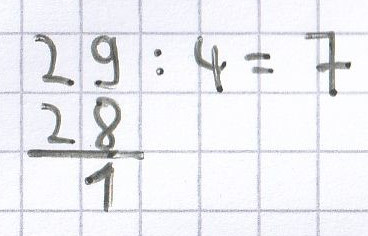 29 : 4 = 7
28
1